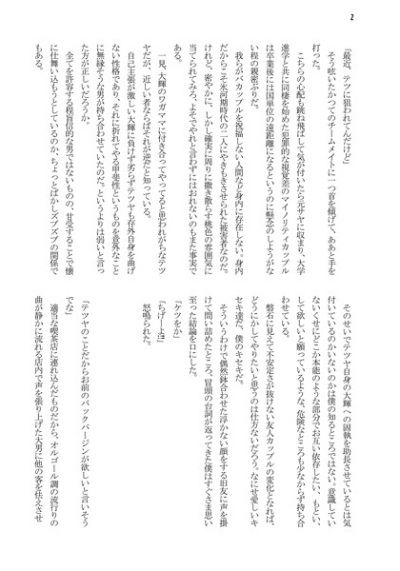 2
「最近、テツに狙われてんだけど」
そう呟いたかつてのチームメイトに一つ首を傾げて、ああと手を
打った。
こちらの心配も跳ね飛ばして気が付いたら元サヤに収まり、大学
進学と共に同棲を始めた犯罪的な視覚差のマイノリティカップル
は卒業後には国単位の遠距離になるというのに懸念のしようがな
い程の親密ぶりだ。
我らがバカップルを祝福しない人間など身内に存在しない。身内
だからこそ氷河期時代の二人にやきもきさせられた被害者なのだ。
けれど、密やかに、しかし確実に周りに撒き散らす桃色の雰囲気に
当てられてみろ、よそでやれと言わずにはおれないのもまた事実で
ある。
一見、大輝のワガママに付き合ってやってると思われがちなテツ
ヤだが、近しい者ならばそれが逆だと知っている。
自己主張が激しい大輝に負けず劣らずテツヤも存外自身を曲げ
ない性格であり、それに折れてやる甲斐性というものを意外なこと
に無縁そうな男が持ち合わせていたのだ。というよりは弱いと言っ
た方が正しいだろうか。
全てを許容する程盲信的な男ではないものの、甘受することで懐
に仕舞い込もうとしているのか、ちょっとばかしズブズブの関係で
もある。
そのせいでテツヤ自身の大輝への固執を助長させているとは気
付いているのかいないのかは僕の知るところではない。意識してい
ないくせにどこか本能のような部分でお互い依存したい、もとい、
して欲しいと願っているような、危険なところも少なからず持ち合
わせている。
盤石に見えて不安定さが抜けない友人カップルの変化となれば、
どうにかしてやりたいと思うのは仕方ないだろう。なにせ愛しいキ
セキ達だ、僕のキセキだ。
そういうわけで偶然鉢合わせた浮かない顔をする旧友に声を掛
けて問い詰めたところ、冒頭の台詞が返ってきた僕はすぐさま思い
至った結論を口にした。
「ケツをか」
「ちげーよ!!」
怒鳴られた。
「テツヤのことだからお前のバックバージンが欲しいと言いそう
でな」
適当な喫茶店に連れ込んだものだから、オルゴール調の流行りの
曲が静かに流れる店内で声を張り上げた大男に他の客を怯えさせ